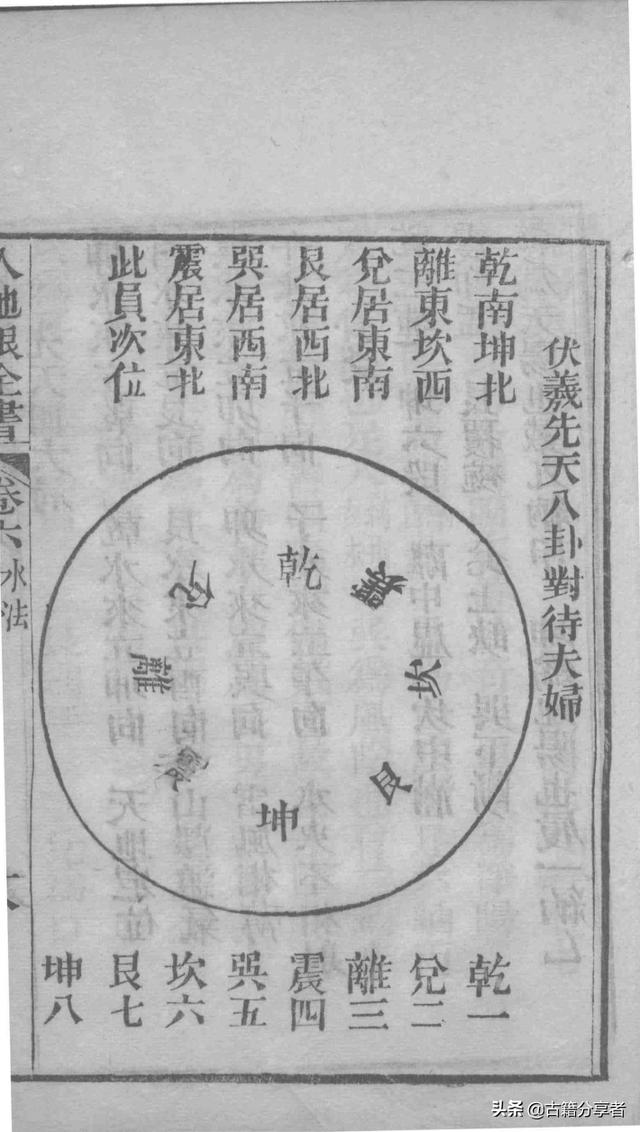 伏羲先天八卦對待夫婦
乾南坤北
離東坎西
兌居東南
艮居西北
巽居西南
震居東北
此員次位
乾
兌
巽
離
坎
震
艮
坤
乾一
兌二
離三
震四
巽五
坎六
艮七
坤八
人地眼全書
卷六
水法
头条 @古籍分享者